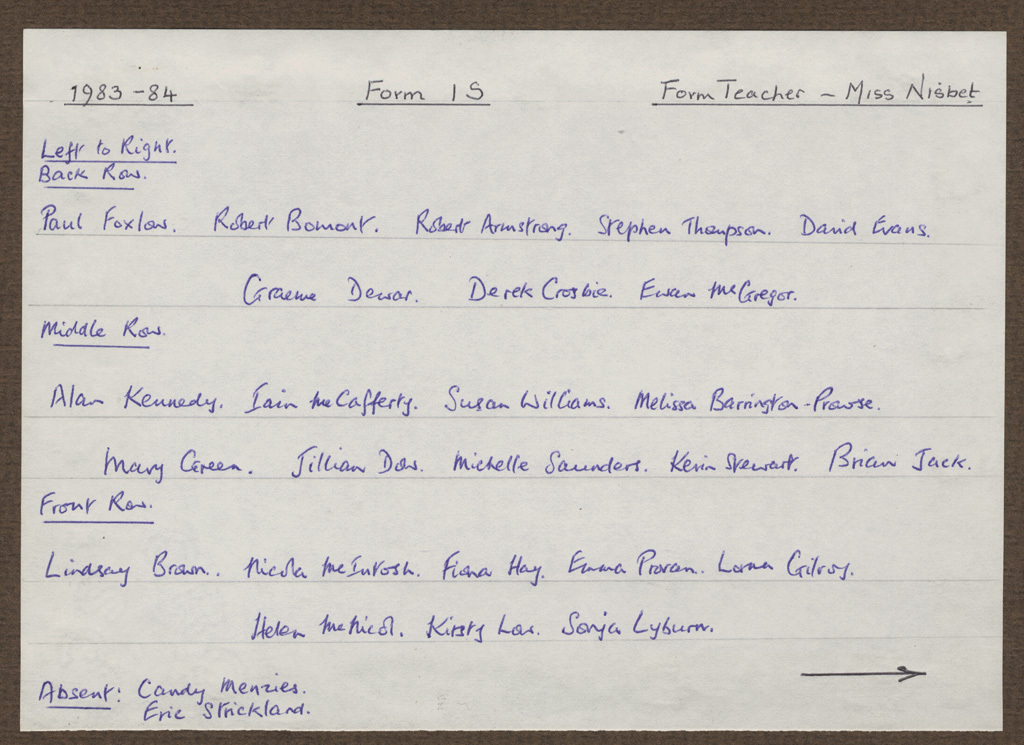 1983-84 Form 1S Form Teacher - Miss Nisbet
Left to Right.
Back Row.
Paul Foxlow. Robert Bomont. Robert Armstrong. Stephen Thompson. David Evans.
Graeme Dewar. Derek Crosbie. Ewan McGregor.
Middle Row.
Alan Kennedy. Iain McCafferty. Susan Williams. Melissa Barrington-Prowse.
Mary Green. Jillian Dow. Michelle Saunders. Kevin Stewart. Brian Jack.
Front Row.
Lindsay Brown. Nicola McIntosh. Fiona Hay. Emma Provan. Lorna Gilroy.
Helen McNicol. Kirsty Low. Sonja Lyburn.
Absent: Candy Menzies.
Eric Strickland.